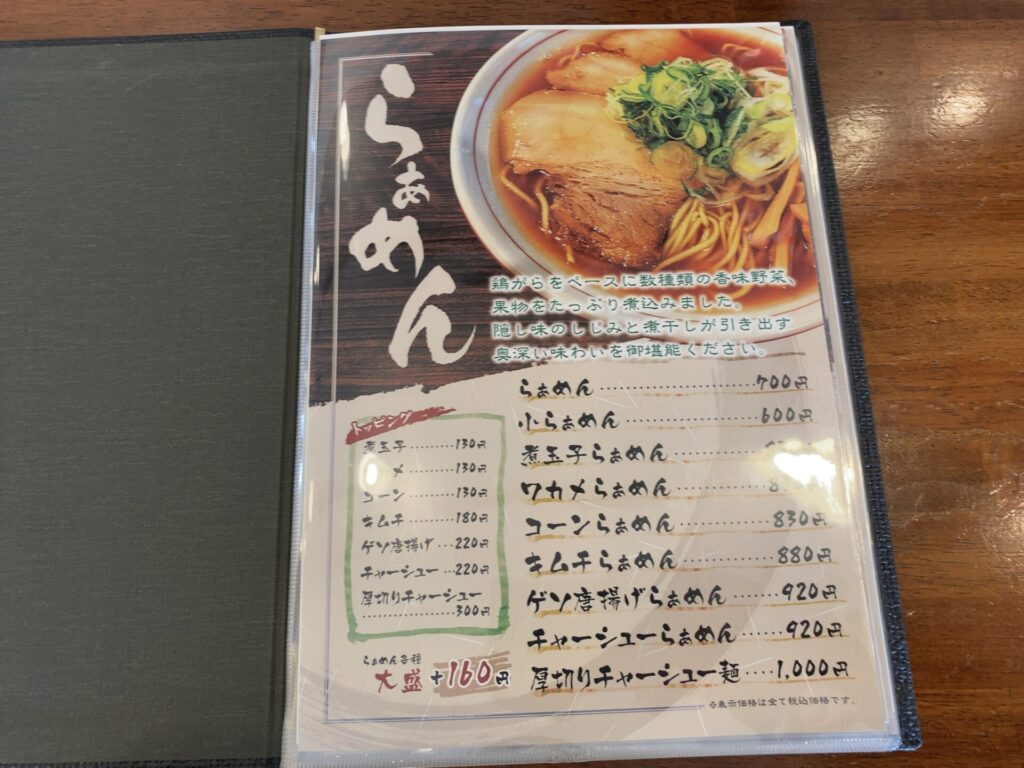 らぁめん
鶏がらをベースに数種類の香味野菜、
果物をたっぷり煮込みました。
隠し味のしじみと煮干しが引き出す
奥深い味わいを御堪能ください。
らぁめん 700円
小らぁめん 600円
煮玉子らぁめん
ワカメらぁめん
コーンらぁめん 830円
キムチらぁめん 880円
ゲソ唐揚げらぁめん 920円
チャーシューらぁめん 920円
厚切りチャーシュー麺 1,000円
※表示価格は全て税込価格です。
トッピング
煮玉子 130円
メ 130円
コーン 130円
キムチ 180円
ゲソ唐揚げ 220円
チャーシュー 220円
厚切りチャーシュー
300円
らぁめん各種
大盛 +160円